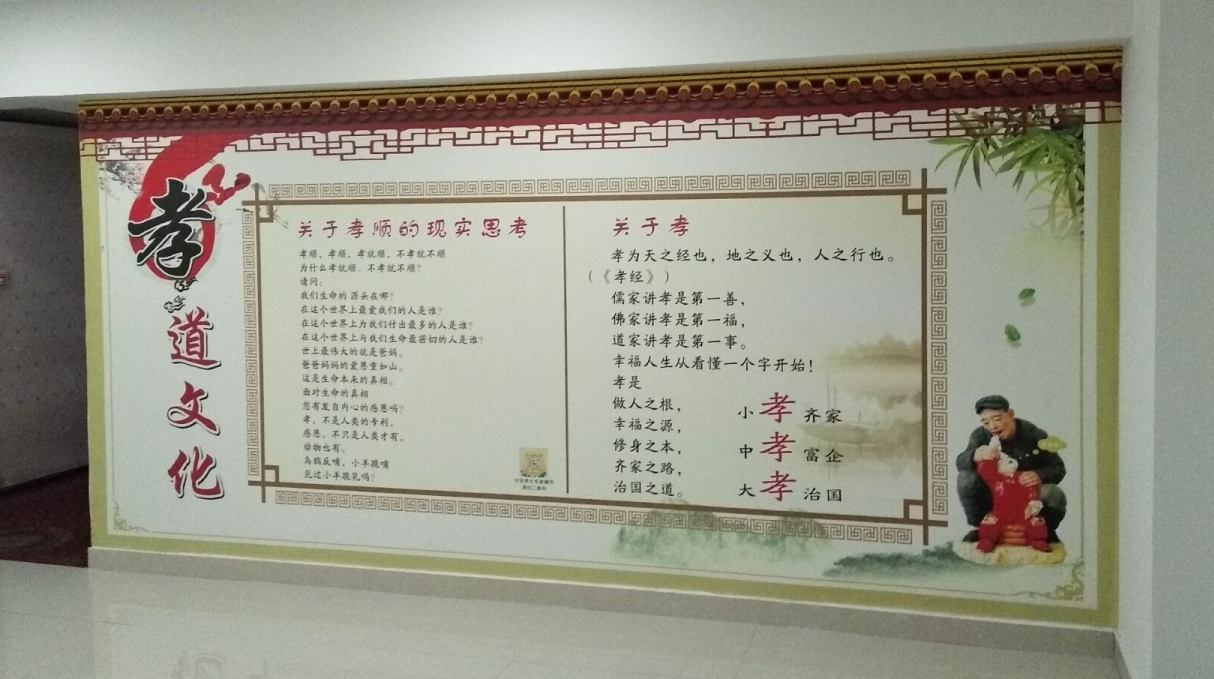 孝
道
文
化
关于孝顺的现实思考
孝顺，孝顺，孝就顺，不孝就不顺
为什么孝就顺、不孝就不顺？
请问：
我们生命的源头在哪？
在这个世界上最爱我们的人是谁？
在这个世界上为我们付出最多的人是谁？
在这个世界上与我们生命最密切的人是谁？
世上最伟大的就是爸妈。
爸爸妈妈的爱恩重如山。
这是生命本来的真相。
面对生命的真相
您有发自内心的感恩吗？
孝，不是人类的专利。
感恩，不只是人类才有。
动物也有。
乌鸦反哺，小羊跪哺
见过小羊跪乳吗？
关于孝
孝为天之经也，地之义也，人之行也。
（《孝经》）
儒家讲孝是第一善，
佛家讲孝是第一福，
道家讲孝是第一事。
幸福人生从看懂一个字开始！
孝是
做人之根，
幸福之源，
修身之本，
齐家之路，
治国之道。
小孝齐家
中孝富企
大孝治国